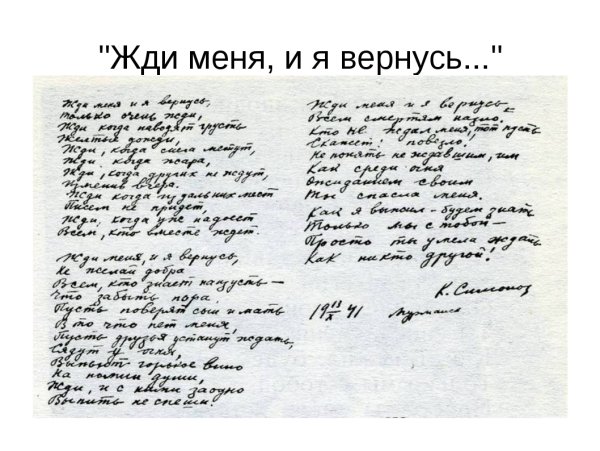 "Жди меня, и я вернусь..."
Жди меня и я вернусь,
Только очень жди,
Жди когда наводят грусть
Желтые дожди,
Жди, когда снега метут,
Жди когда жара,
Жди, когда других не ждут,
Изменив вчера.
Жди когда из дальних мест
Писем не придет,
Жди, когда уже надоест
Всем, кто вместе ждет.
Жди меня, и я вернусь,
Не желай добра
Всем, кто знает наизусть —
Что забыть пора.
Пусть поверят сын и мать
В то что нет меня,
Пусть друзья устанут ждать,
Сядут у огня,
Выпьют горькое вино
На помин души,
Жди, и с ними заодно
Выпить не спеши.
Жди меня и я вернусь
Всем смертям назло.
Кто не ждал меня, тот пусть
Скажет: повезло.
Не понять не ждавшим, им
Как среди огня
Ожиданием своим
Ты спасла меня.
Как я выжил - будем знать
Только мы с тобой —
Просто ты умела ждать
Как никто другой!
К. Симонов
19 13/X 41 Мурманск